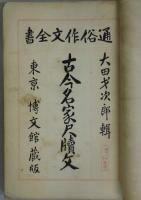 通俗作文全書
大田才次郎輯
古今名家尺牘文
東京 博文館蔵版